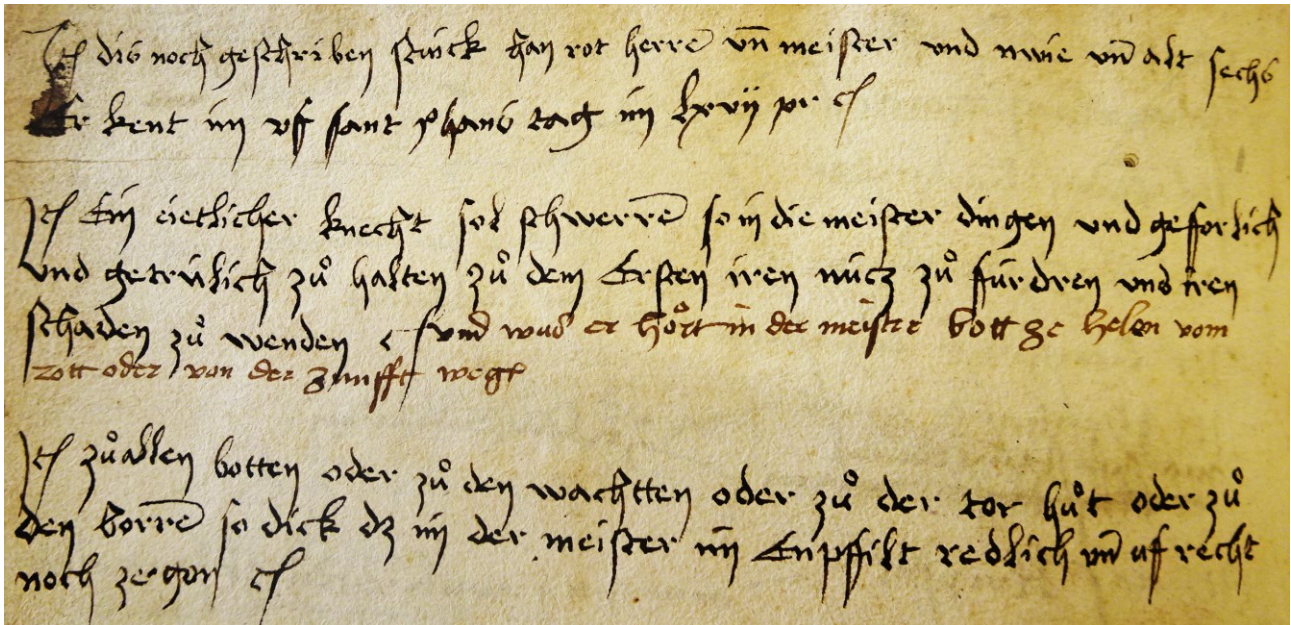 Jt dis noch geschriben stuick han rot herrē vn̄ meister und nwie vn̄ alt sechs
Er kent im vff sant Johans tag im lxvij jor ꝛc
Jt Ein ietlicher knecht sol schwerrē so in die meister dingen und gefforlich
und getrülich zů halten zů dem Ersten iren nücz zů fürdren und iren
schaden zů wenden ꝛc und was er hört in der meister bott ze helen vom
rott oder von der zunfft wegē
Jt zů allen botten oder zů den wachtten oder zů der tor hůt oder zů
den borrē so dick dz im der meister im Enpffilt redlich vn̄ uf recht
noch ze gon ꝛc